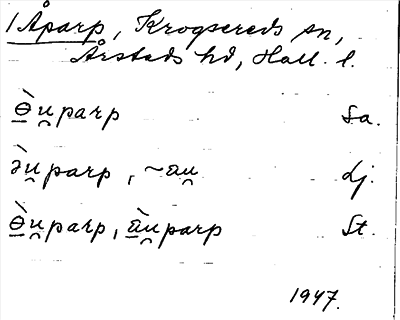 1 Åparp, Krogsereds sn,
Årstads hd, Hall. l.
ɵ̲̀u̯parp Sa.
ə̀u̯parp, ~au̯ Lj.
ɵ̲̀u̯parp, à̲u̯parp St.
1947.